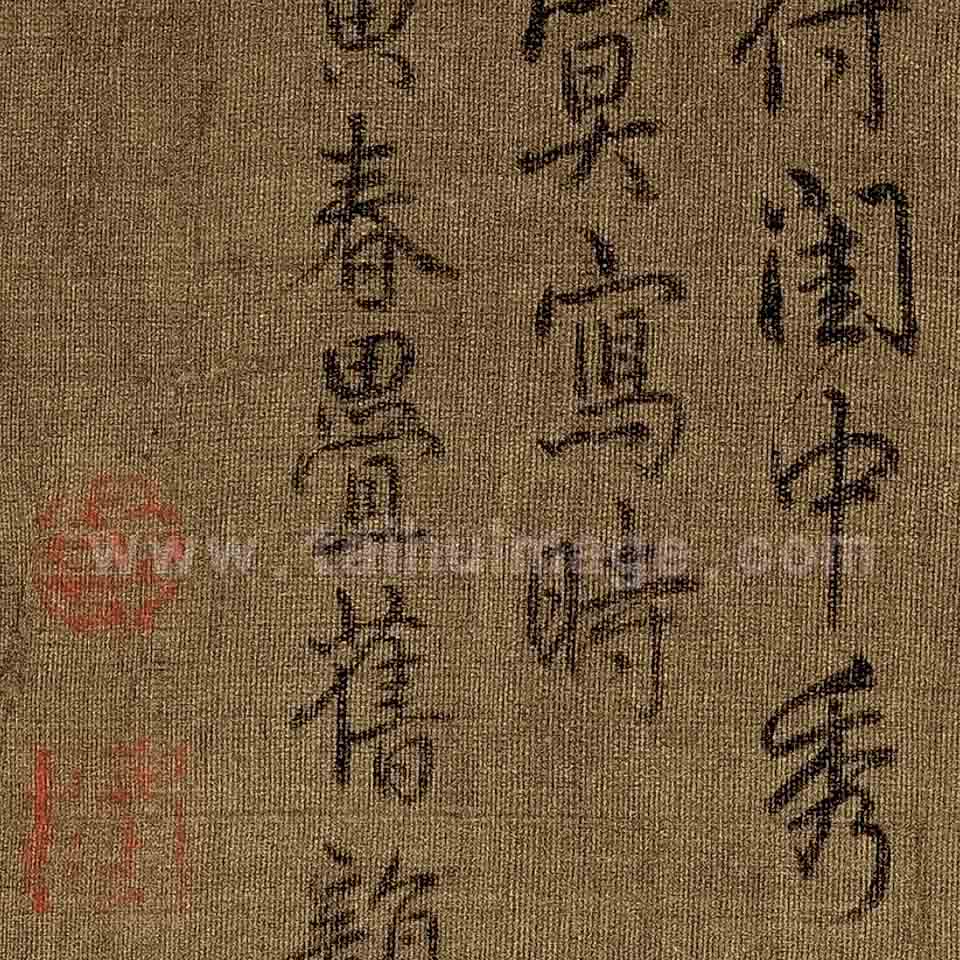 付閨中秀
寫時
寅春疊舊韻
www.taihuimage.com